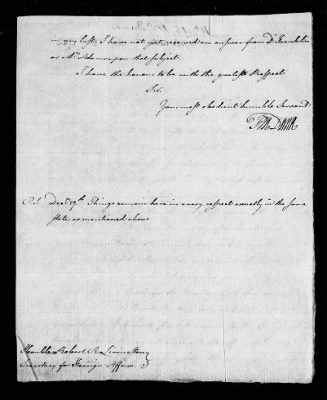 in my last. I have not yet received an answer from Dr. Franklin
or Mr. Adams upon that subject.
I have the honour to be with the greatest Respect
Sir,
Your most obedient humble Servant
FRA DANA
P.S. Decr. 19th. Things remain here in every respect exactly in the same
state as mentioned above.
Honble. Robert R. Livingston
Secretary for Foreign Affairs.